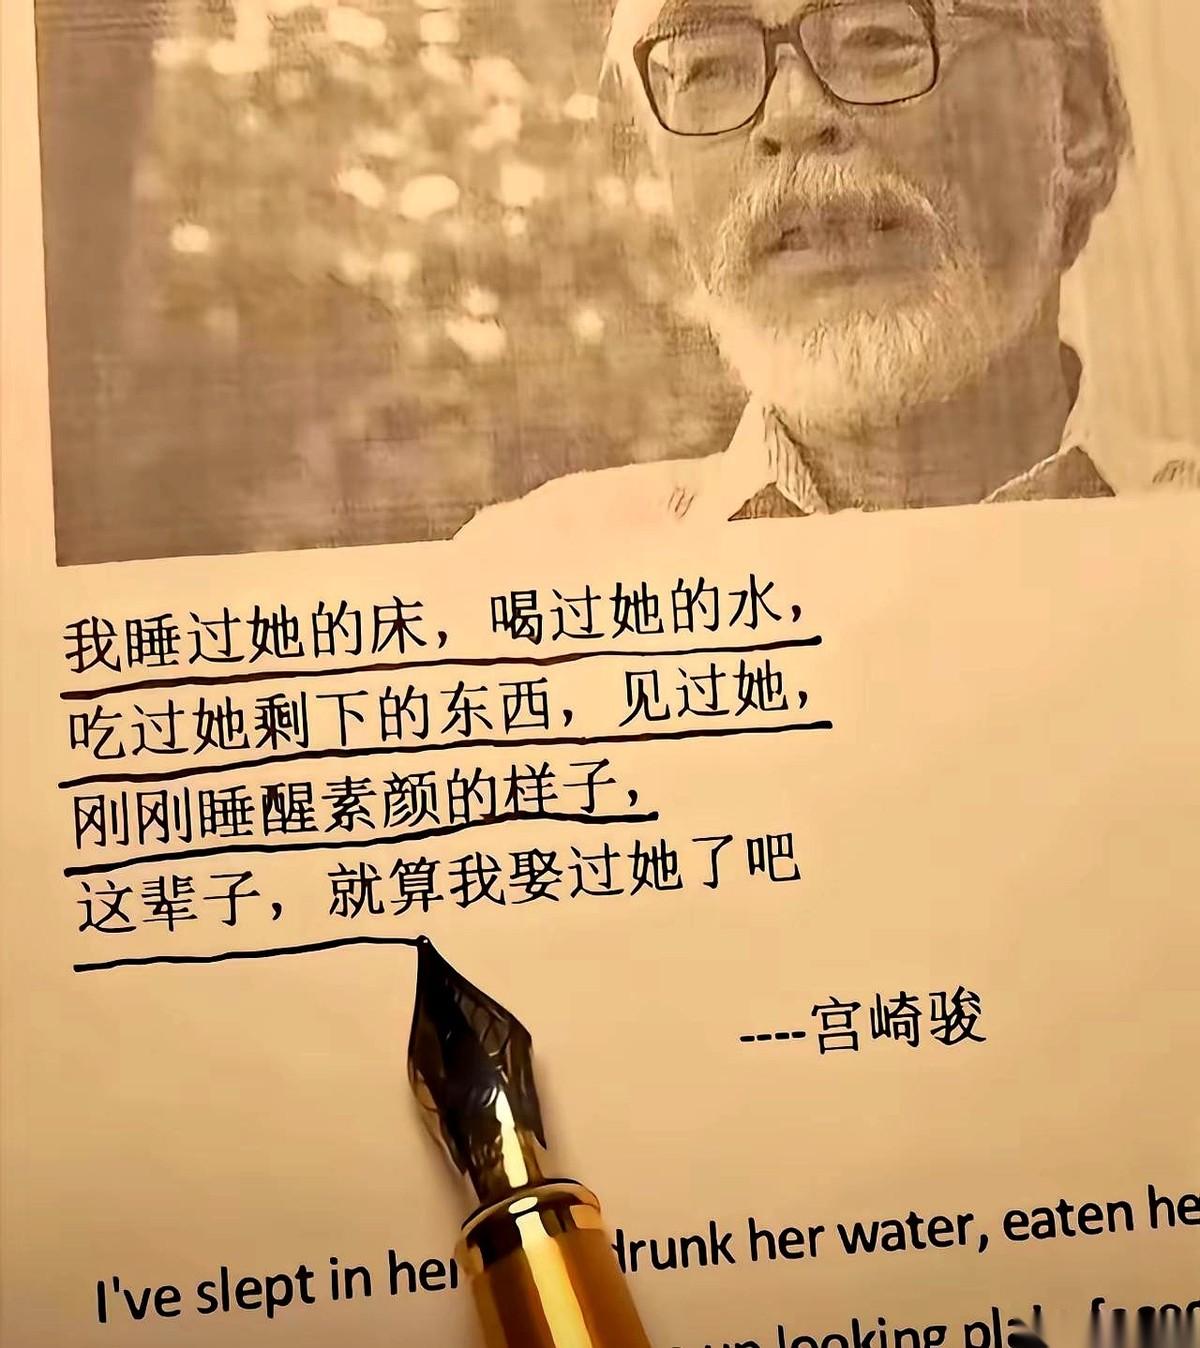 我睡过她的床，喝过她的水，
吃过她剩下的东西，见过她，
刚刚睡醒素颜的样子，
这辈子，就算我娶过她了吧
----宫崎骏
I've slept in her drunk her water, eaten
looking